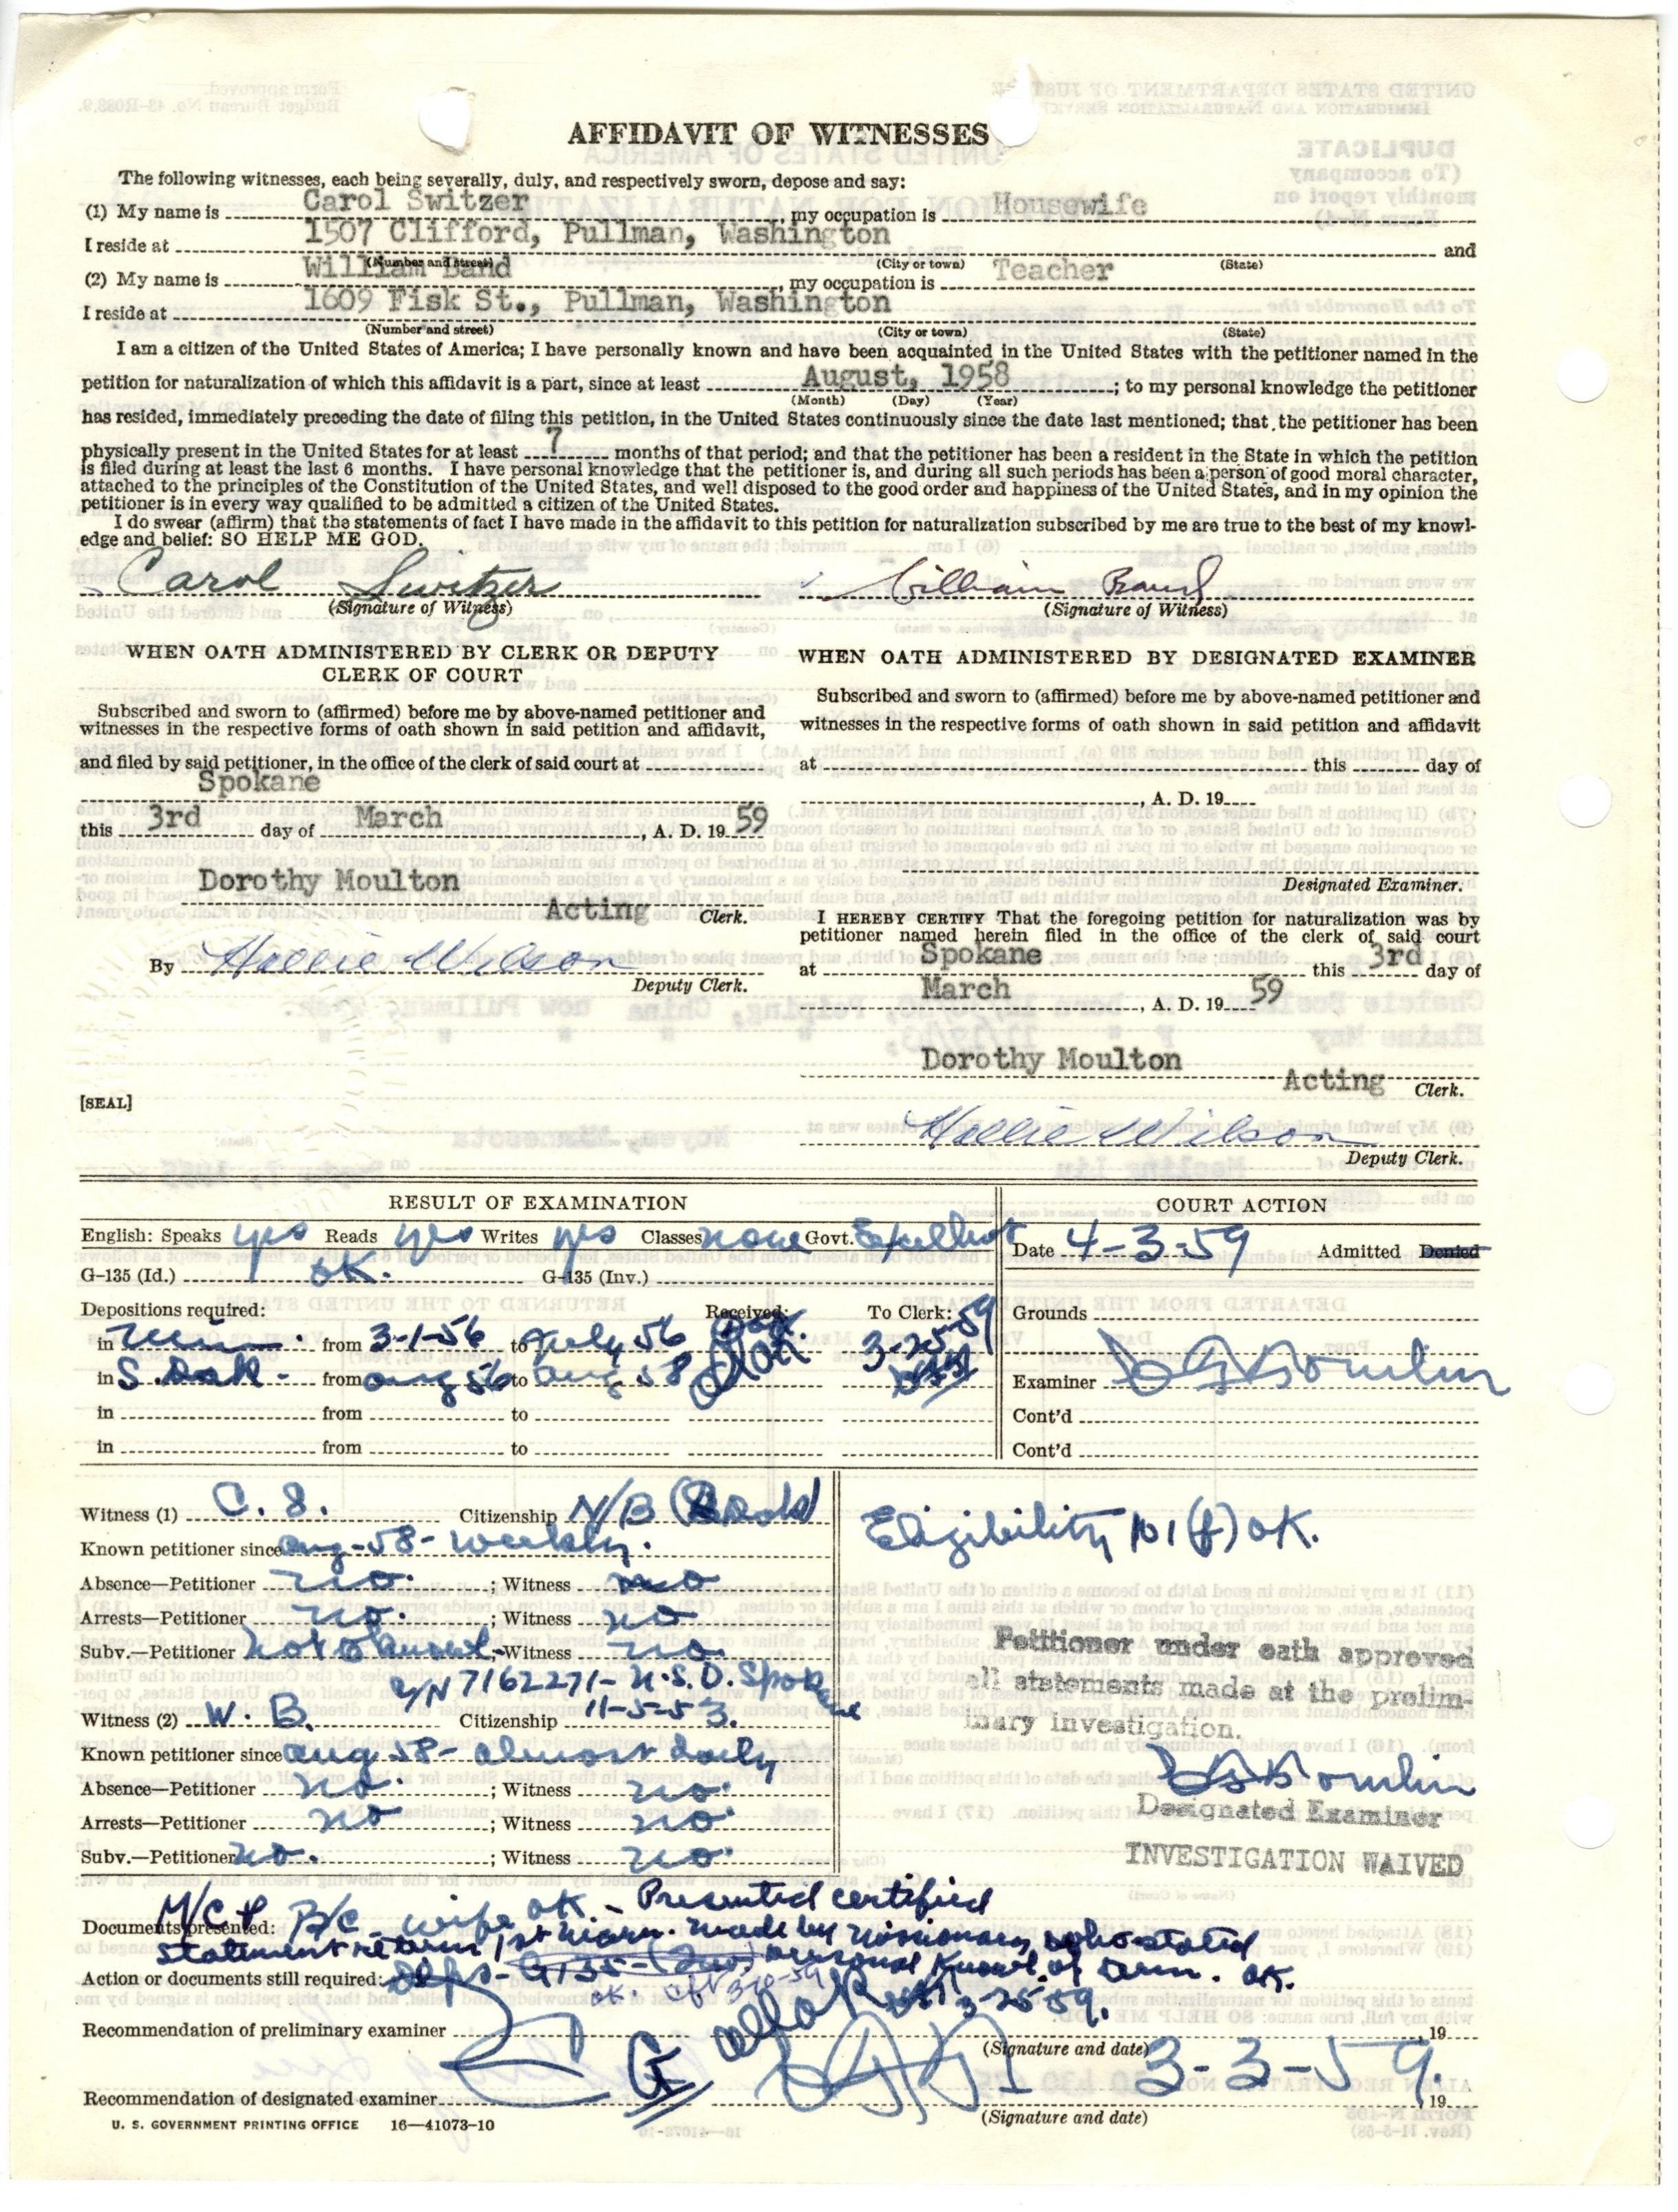 AFFIDAVIT OF WITNESSES
The following witnesses, each being severally, duly, and respectively sworn, depose and say:
(1) My name is Carol Switzer, my occupation is Housewife
I reside at 1507 Clifford, Pullman, Washington and
(Number and street) (City or town) (State)
(2) My name is William Band, my occupation is Teacher
I reside at 1609 Fisk St., Pullman, Washington
(Number and street) (City or town) (State)
I am a citizen of the United States of America; I have personally known and have been acquainted in the United States with the petitioner named in the
petition for naturalization of which this affidavit is a part, since at least August, 1958; to my personal knowledge the petitioner
(Month) (Day) (Year)
has resided, immediately preceding the date of filing this petition, in the United States continuously since the date last mentioned; that the petitioner has been
physically present in the United States for at least 7 months of that period; and that the petitioner has been a resident in the State in which the petition
is filed during at least the last 6 months. I have personal knowledge that the petitioner is, and during all such periods has been a person of good moral character,
attached to the principles of the Constitution of the United States, and well disposed to the good order and happiness of the United States, and in my opinion the
petitioner is in every way qualified to be admitted a citizen of the United States.
I do swear (affirm) that the statements of fact I have made in the affidavit to this petition for naturalization subscribed by me are true to the best of my knowl-
edge and belief: SO HELP ME GOD.
Carol Switzer William Band
(Signature of Witness) (Signature of Witness)
WHEN OATH ADMINISTERED BY CLERK OR DEPUTY
CLERK OF COURT
Subscribed and sworn to (affirmed) before me by above-named petitioner and
witnesses in the respective forms of oath shown in said petition and affidavit,
and filed by said petitioner, in the office of the clerk of said court at
Spokane
this 3rd day of March, A. D. 19 59
Dorothy Moulton
Acting Clerk.
By Hollie Wilson
Deputy Clerk.
[SEAL]
WHEN OATH ADMINISTERED BY DESIGNATED EXAMINER
Subscribed and sworn to (affirmed) before me by above-named petitioner and
witnesses in the respective forms of oath shown in said petition and affidavit
at this day of
, A. D. 19
Designated Examiner.
I HEREBY CERTIFY That the foregoing petition for naturalization was by
petitioner named herein filed in the office of the clerk of said court
at Spokane this 3rd day of
March, A. D. 19 59
Dorothy Moulton
Acting Clerk.
Hollie Wilson
Deputy Clerk.
RESULT OF EXAMINATION
English: Speaks yes Reads yes Writes yes Classes none Govt. Excellent
G-135 (Id.) OK. G-135 (Inv.)
Depositions required: Received: To Clerk:
in from 3-1-56 to July 56 3-25-59
in S. Dak - from Aug 56 to Aug 58
in from to
in from to
COURT ACTION
Date 4-3-59 Admitted Denied
Grounds
Examiner
Cont'd
Cont'd
Witness (1) C. S. Citizenship N/B
Known petitioner since Aug-58- weekly.
Absence—Petitioner no. ; Witness no
Arrests—Petitioner no. ; Witness no
Subv.—Petitioner ; Witness no.
C/N 7162271- U.S.D. Spokane
Witness (2) W. B. Citizenship 11-5-53.
Known petitioner since Aug 58- almost daily
Absence—Petitioner no. ; Witness no.
Arrests—Petitioner no ; Witness no.
Subv.—Petitioner no. ; Witness no.
Eligibility 101(f) OK.
Petitioner under oath approved
all statements made at the prelim-
inary investigation.
Designated Examiner
INVESTIGATION WAIVED
M/C & B/C wife OK - Presented certified
Documents presented:
statement 1st made by missionary who stated
Action or documents still required: Deps - G135 - personal knowl. of OK.
OK. 3-10-59 all OK 3-25-59.
Recommendation of preliminary examiner , 19
(Signature and date)
3-3-59.
Recommendation of designated examiner , 19
(Signature and date)
U. S. GOVERNMENT PRINTING OFFICE 16—41073-10